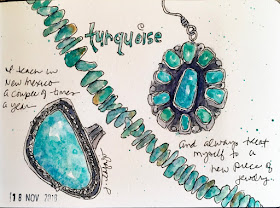 turquoise
I teach in
New Mexico
a couple of times
a year
and always treat
myself to a
new piece of
jewelry.
18 NOV 2018